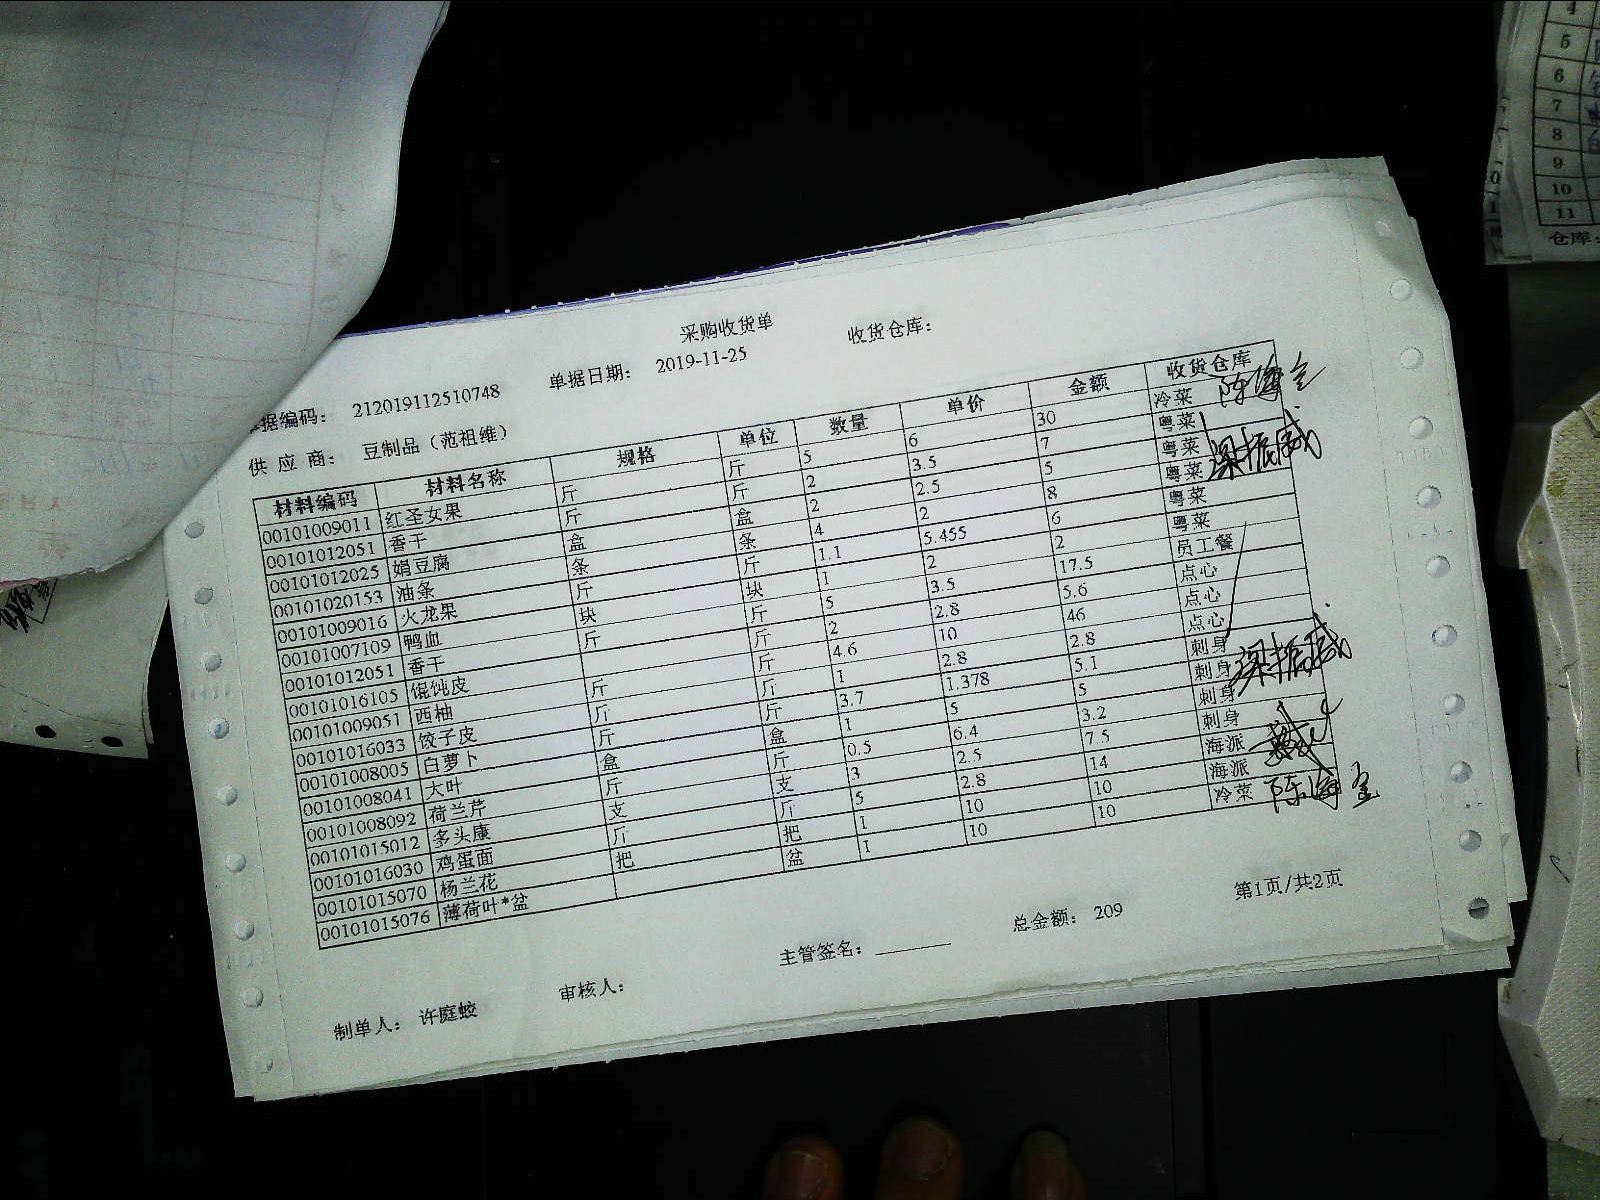 采购收货单
据编码: 212019112510748 单据日期: 2019-11-25 收货仓库:
供 应 商: 豆制品（范祖维）
材料编码 材料名称 规格 单位 数量 单价 金额 收货仓库
00101009011 红圣女果 斤 斤 5 6 30 冷菜 陈海金
00101012051 香干 斤 斤 2 3.5 7 粤菜
00101012025 娟豆腐 盒 盒 2 2.5 5 粤菜
00101020153 油条 条 条 4 2 8 粤菜
00101009016 火龙果 斤 斤 1.1 5.455 6 粤菜
00101007109 鸭血 块 块 1 2 2 粤菜
00101012051 香干 斤 斤 5 3.5 17.5 员工餐
00101016105 馄饨皮 斤 2 2.8 5.6 点心
00101009051 西柚 斤 斤 4.6 10 46 点心
00101016033 饺子皮 斤 斤 1 2.8 2.8 点心
00101008005 白萝卜 斤 斤 3.7 1.378 5.1 刺身
00101008041 大叶 盒 盒 1 5 5 刺身
00101008092 荷兰芹 斤 斤 0.5 6.4 3.2 刺身
00101015012 多头康 支 支 3 2.5 7.5 刺身
00101016030 鸡蛋面 斤 斤 5 2.8 14 海派
00101015070 杨兰花 把 把 1 10 10 海派
00101015076 薄荷叶*盆 盆 1 10 10 冷菜 陈海金
总金额: 209 第1页/共2页
制单人: 许庭蛟 审核人: 主管签名:
4
5
6
7
8
9
10
11
仓库: